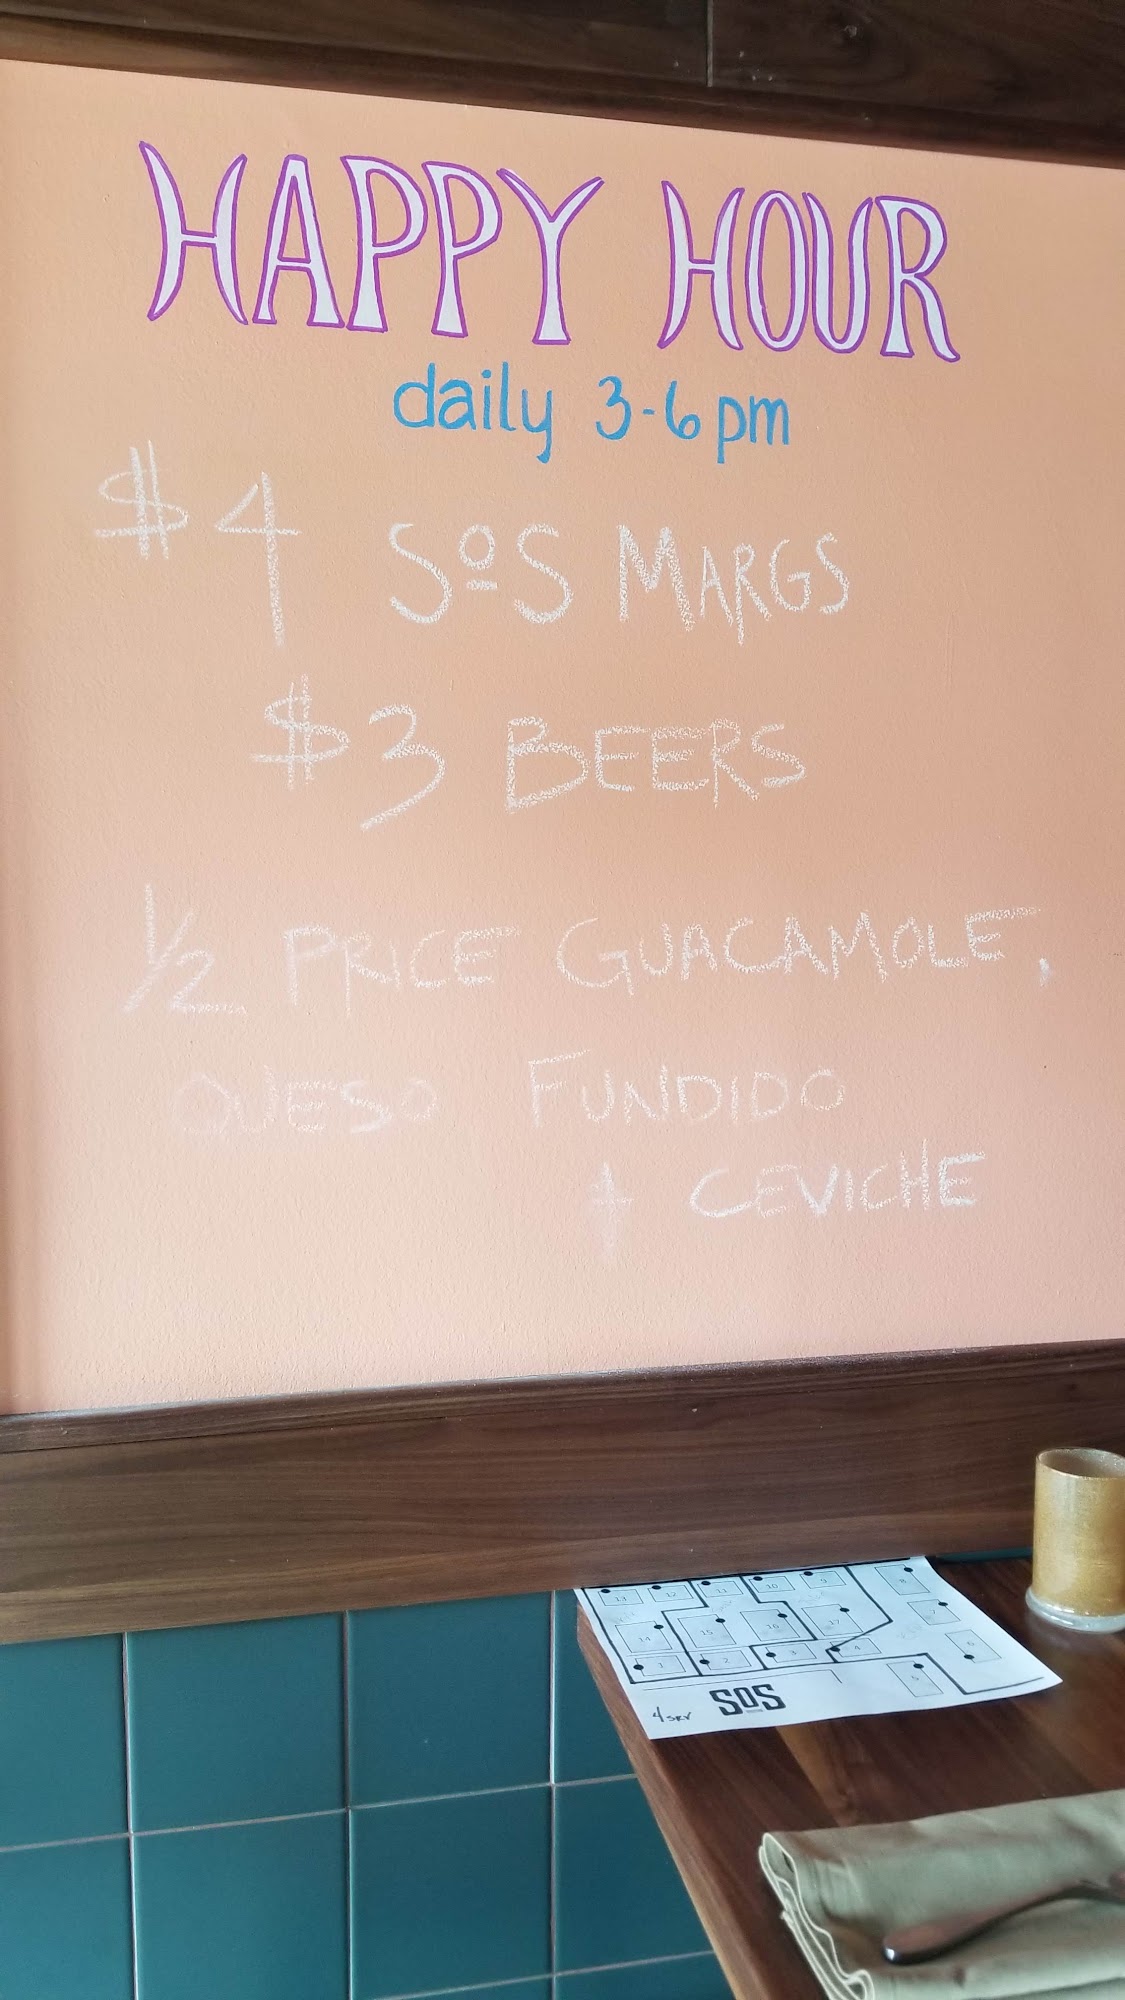 HAPPY HOUR
daily 3-6pm
$4 SOS MARGS
$3 BEERS
1/2 PRICE GUACAMOLE,
QUESO FUNDIDO
+ CEVICHE
13 12 11 10 9 8
14 15 16 17 7
1 2 3 4 6
5
4 SRV SOS